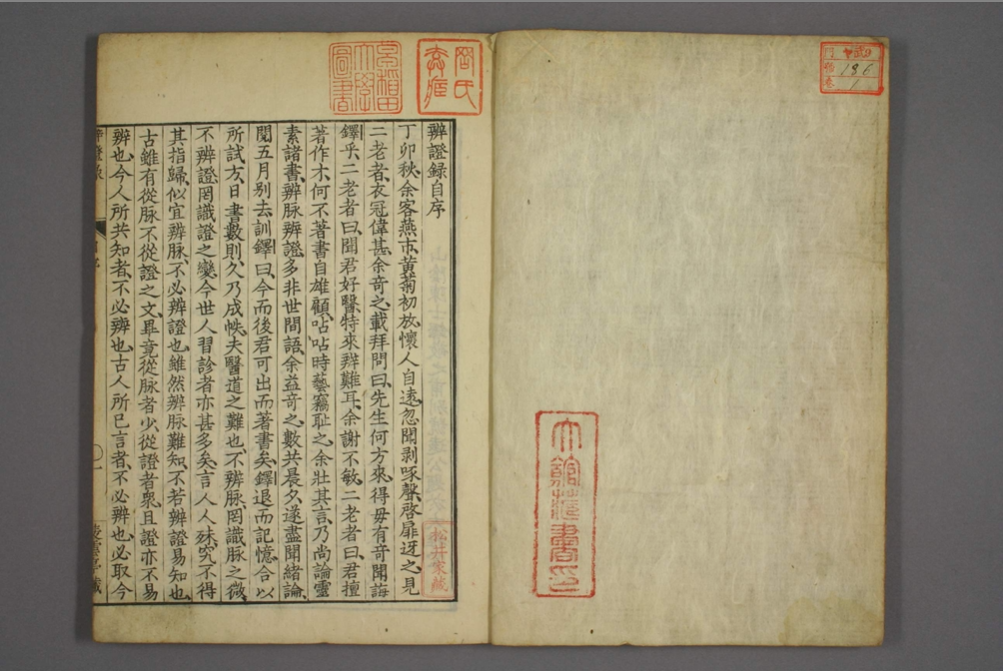 辨證録自序
丁卯秋、余客燕市、黃菊初放、懷人自遠、忽聞剥啄聲、啓扉迓之、見
二老者、衣冠偉甚、余奇之、載拜問曰、先生何方來、得毋有奇聞誨
鐸乎、二老者曰、聞君好醫、特來辨難耳、余謝不敏、二老者曰、君擅
著作才、何不著書自雄、顧呫呫時藝、竊耻之、余壯其言、乃尚論靈
素諸書、辨脉辨證、多非世間語、余益奇之、數共晨夕、遂盡聞緒論、
閲五月別去、訓鐸曰、今而後君可出而著書矣、鐸退而記憶、合以
所試方、日書數則、久乃成帙、夫醫道之難也、不辨脉、罔識脉之微、
不辨證、罔識證之變、今世人習診者亦甚多矣、言人人殊、究不得
其指歸、似宜辨脉、不必辨證也、雖然辨脉難知、不若辨證易知也、
古雖有從脉不從證之文、畢竟從脉者少、從證者衆、且證亦不易
辨也、今人所共知者、不必辨也、古人所已言者、不必辨也、必取今
辨證録
自序
一
藏
松井家藏
圖書
186
1